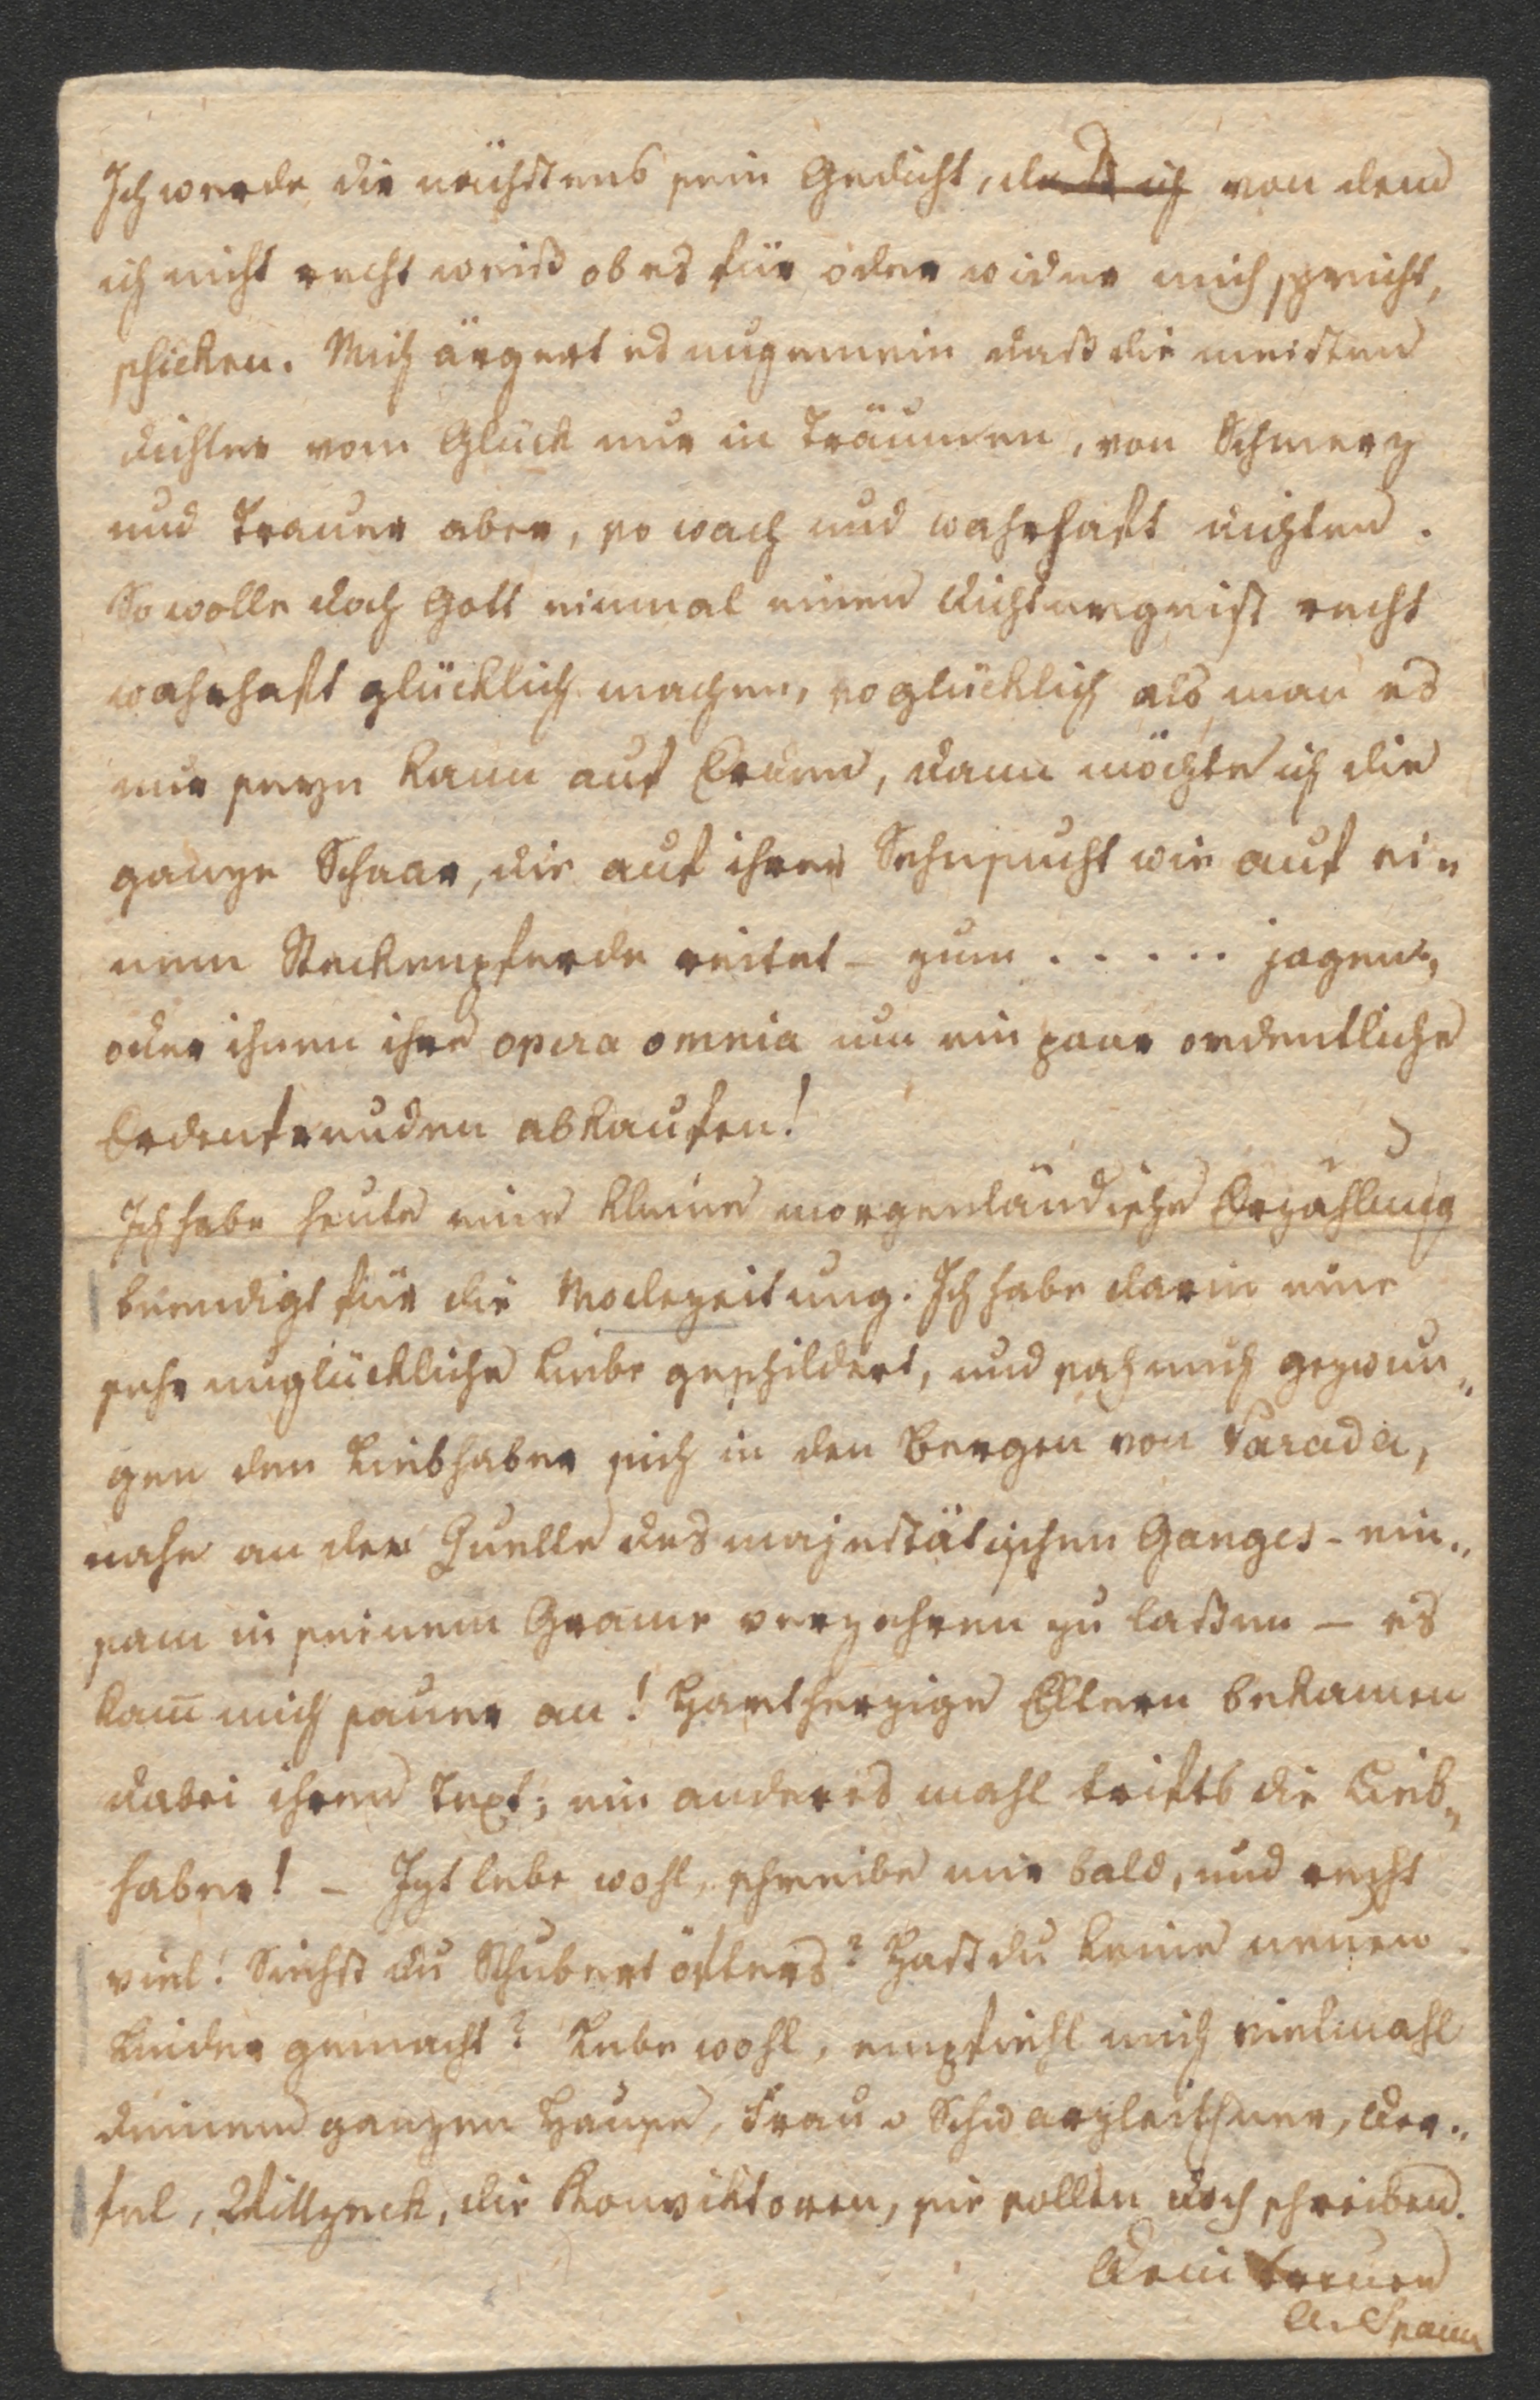 Ich werde dir nächstens sein Gedicht, daß ich von dem
ich nicht recht weiß ob es für oder wider mich spricht,
schicken. Mich ärgert es ungemein daß die meisten
Dichter vom Glück nur in Träumen, von Schmerz
und Trauer aber, so wach und wahrhaft dichten.
So wolle doch Gott einmal einen Dichtergeist recht
wahrhaft glücklich machen, so glücklich als man es
nur seyn kann auf Erden, dann möchte ich die
ganze Schaar, die auf ihrer Sehnsucht wie auf ei=
nem Steckenpferde reitet – zum . . . . . jagen,
oder ihnen ihre opera omnia um ein paar ordentliche
Erdenfreuden abkaufen!
Ich habe heute eine kleine morgenländische Erzählung
beendigt für die Modezeitung. Ich habe darin eine
sehr unglückliche Liebe geschildert, und sah mich gezwun„
gen den Liebhaber sich in den Bergen von Varada,
nahe an der Quelle des majestätischen Ganges – ein„
sam in seinem Grame verzehren zu laßen – es
kam̅ mich sauer an! Hartherzige Eltern bekamen
dabei ihren Text; ein anderes mahl trifts die Lieb„
haber! – Jzt lebe wohl, schreibe mir bald, und recht
viel! Siehst du Schubert öfters? Hast du keine neuen
Lieder gemacht? Lebe wohl, empfiehl mich vielmahl
deinem ganzen Hause, Frau v Schwarzleithner, Der„
fel, Willzeck, die Konviktoren, sie sollen doch schreiben.
Dein treuer
A. Spaun